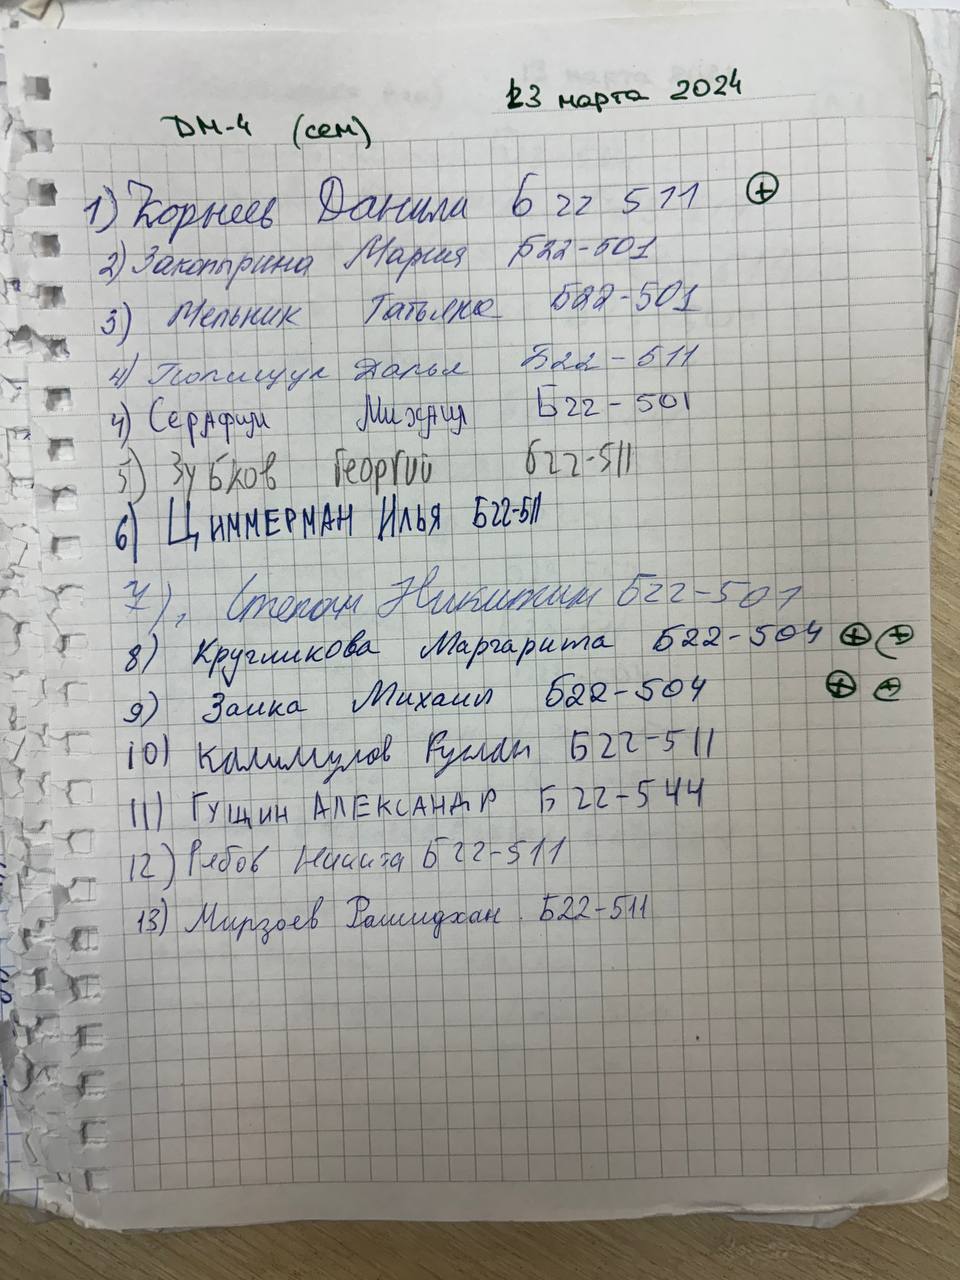 23 марта 2024
ДМ-4 (сем)
1) Корнеев Данила Б22 511 ⊕
2) Закопырина Мария Б22-501
3) Мельник Татьяна Б22-501
4) Полищук Дарья Б22-511
4) Серафим Михаил Б22-501
5) Зубков Георгий Б22-511
6) Циммерман Илья Б22-511
7) Степан Никитин Б22-501
8) Кругликова Маргарита Б22-504 ⊕ ⊕
9) Заика Михаил Б22-504 ⊕ ⊕
10) Калимулов Руслан Б22-511
11) Гущин Александр Б22-544
12) Рябов Никита Б22-511
13) Мирзоев Рашидхан Б22-511